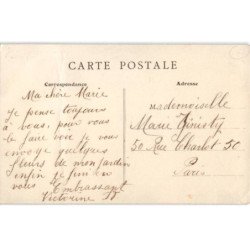 CARTE POSTALE
Correspondance
Ma chère Marie
Je pense toujours
à vous, pour vous
le faire voir je vous
envoye quelques
fleurs de mon Jardin
enfin je finie en
vous Embrassant
Victorine
Adresse
Mademoiselle
Marie
50 Rue Charlot 50
Paris